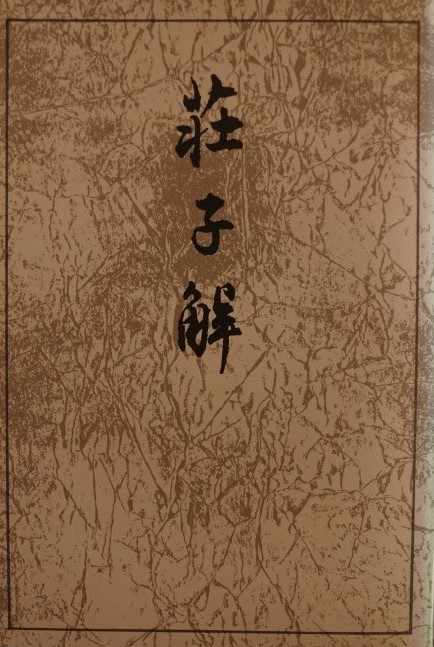 莊子解